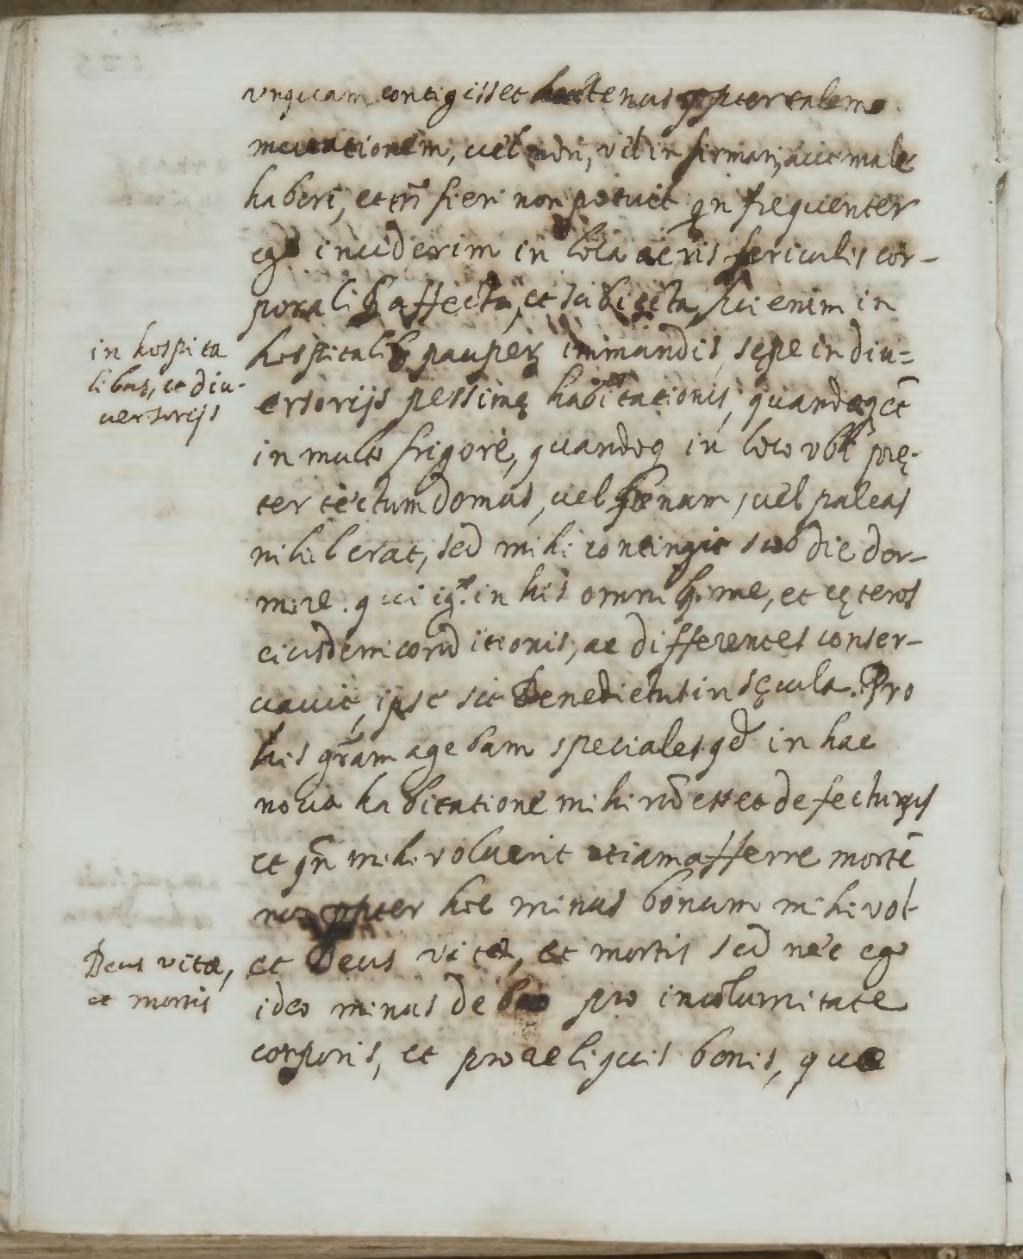 vnquam contigisset hactenus propter talem
mutationem, uel mori, vel infirmari, aut male
haberi, et tñ fieri non potuit qn frequenter
ego inciderim in loca aeris periculis cor-
poralib affecta, et subiecta, fui enim in
hospitalib pauperũ immundis, sępe in diu=
ersorijs pessimę habitationis, quandoq; et
in multo frigore, quandoq in loco vbi prę-
ter tectum domus, uel fenum, uel paleas
nihil erat, sed mihi contingit sub die dor-
mire. qui igr in his omnib me, et cęteros
eiusdem conditionis, ac differentes conser-
uauit, ipse sit Benedictus in sęcula. Pro
his grãm agebam speciales qd in hac
noua habitatione mihi nõ esset defecturus
et qñ mihi voluerit etiam afferre mortẽ
propter hoc minus bonum mihi vol-
et Deus vitæ, et mortis sed nec ego
ideo minus debeo pro incolumitate
corporis, et pro aeliquis bonis, quæ
in hospita
libus, et diu-
uersorijs
Deus vitæ,
et mortis